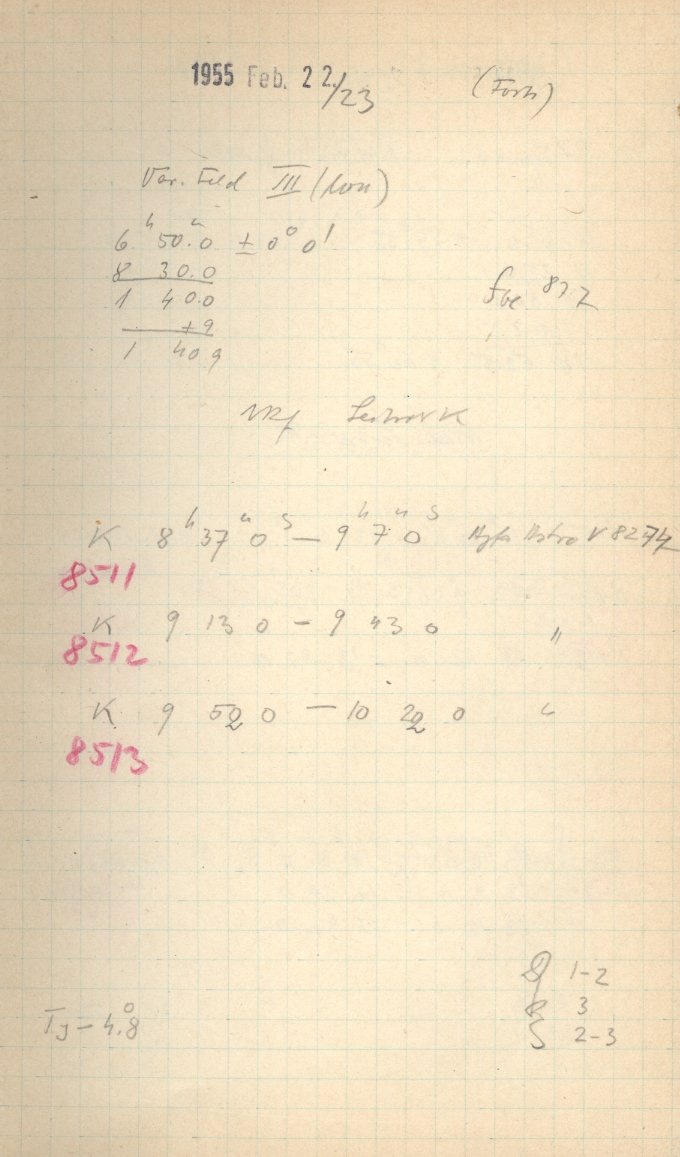 1955 Feb. 22./23
Var. Feld III (Mon)
6ʰ 50.ᵐ0 ± 0° 0'
8 30.0
1 40.0
+9
1 40 9
K 8ʰ 37ᵐ 0ˢ — 9ʰ 7ᵐ 0ˢ Agfa Astro V 8274
8511
K 9 13 0 — 9 43 0 "
8512
K 9 52 0 — 10 22 0 "
8513
1-2
3
2-3
T_J — 4.°8